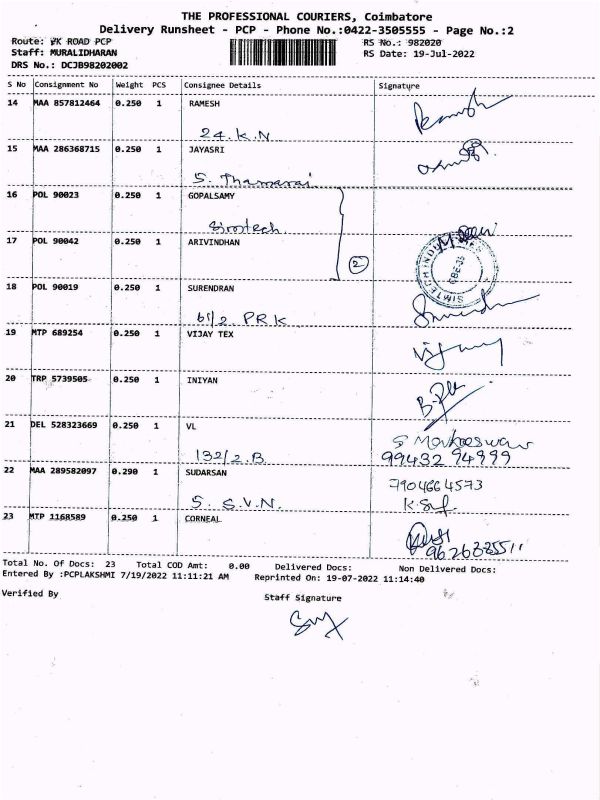 THE PROFESSIONAL COURIERS, Coimbatore
Delivery Runsheet - PCP - Phone No.:0422-3505555 - Page No.:2
Route: PK ROAD PCP
RS No.: 982020
Staff: MURALIDHARAN
RS Date: 19-Jul-2022
DRS No.: DCJB98202002
S No Consignment No Weight PCS Consignee Details Signature
14 MAA 857812464 0.250 1 RAMESH
24. K. N
15 MAA 286368715 0.250 1 JAYASRI
S. Thamarai
16 POL 90023 0.250 1 GOPALSAMY
17 POL 90042 0.250 1 ARIVINDHAN
2
SIMTECH
18 POL 90019 0.250 1 SURENDRAN
61/2. PRK
19 MTP 689254 0.250 1 VIJAY TEX
20 TRP 5739505 0.250 1 INIYAN
21 DEL 528323669 0.250 1 VL
132/2.B
99432 94999
22 MAA 289582097 0.290 1 SUDARSAN
7904664573
S. S.V.N.
23 MTP 1168589 0.250 1 CORNEAL
Total No. Of Docs: 23 Total COD Amt: 0.00 Delivered Docs: Non Delivered Docs:
Entered By :PCPLAKSHMI 7/19/2022 11:11:21 AM Reprinted On: 19-07-2022 11:14:40
Verified By Staff Signature